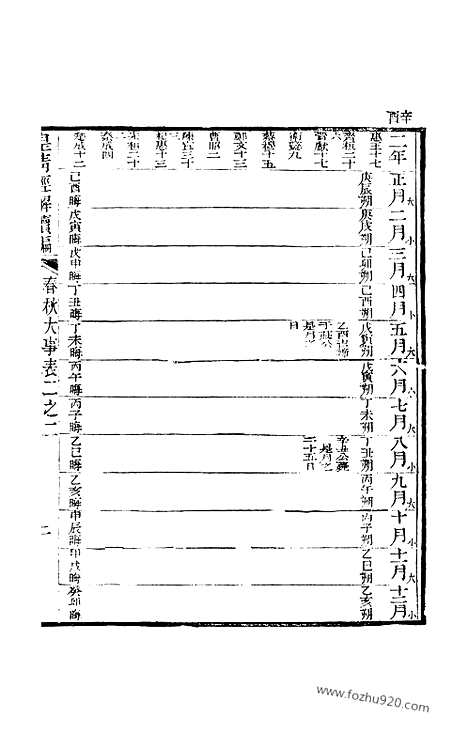 辛酉
二年 正月大 二月小 三月大 四月小 五月大 六月 七月大 八月小 九月大 十月小 十一月大 十二月小
惠王十七
齊桓二十六
晉獻十七
衞懿九
蔡穆十五
鄭文十三
曹昭二
陳宣三十三
杞惠十三
宋桓二十二
秦成四
楚成十二
庚辰朔 庚戌朔 己卯朔 己酉朔 戊寅朔 戊寅朔 丁未朔 丁丑朔 丙午朔 丙子朔 乙巳朔 乙亥朔
乙酉吉禘
于莊公
是月之
日
辛丑公薨
是月之
二十五日
己酉晦 戊寅晦 戊申晦 丁丑晦 丁未晦 丙午晦 丙子晦 乙巳晦 乙亥晦 甲辰晦 甲戌晦 癸卯晦
皇淸經解續編 春秋大事表二之二 二
www.fozhu920.com